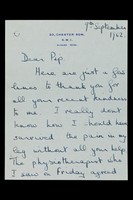 9th September
1962.
Dear Pip
Here are just a few
lines to thank you for
all your recent kindness
to me. I really don't
know how I would have
survived the pain in my
leg without all your help.
The physiotherapist who
I saw on Friday agreed